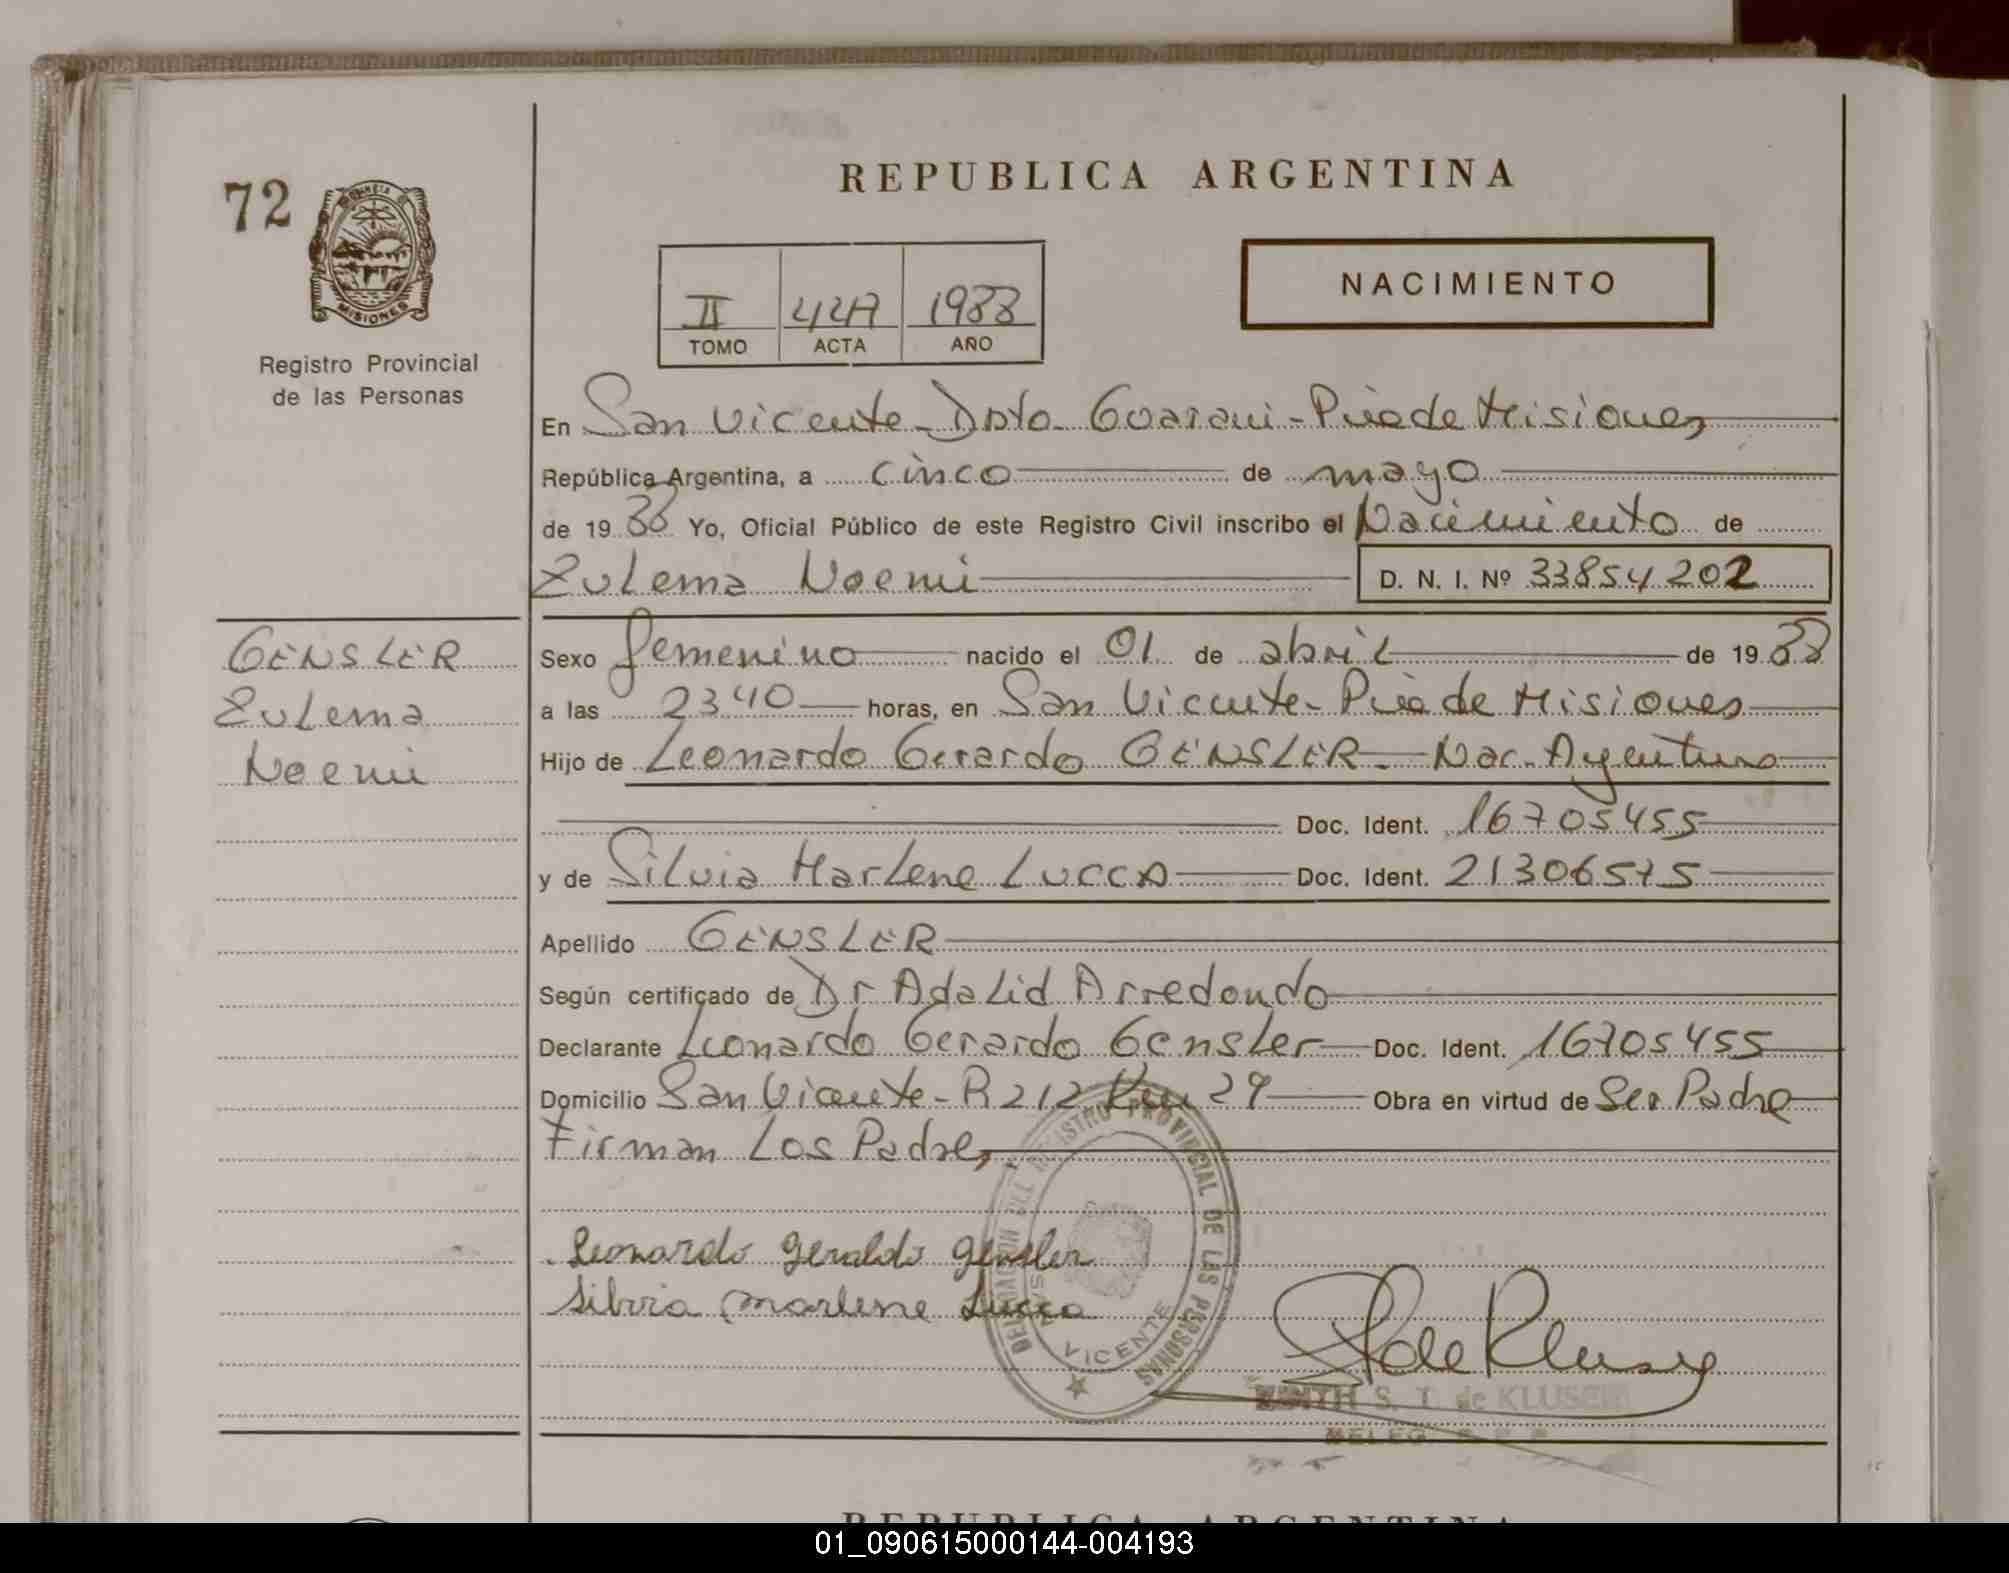 REPUBLICA ARGENTINA
72
MISIONES
Registro Provincial
de las Personas
II 42A 1988
TOMO ACTA AÑO
NACIMIENTO
En San Vicente - Dpto. Guarani - Pcia de Misiones
República Argentina, a cinco de mayo
de 1988 Yo, Oficial Público de este Registro Civil inscribo el Nacimiento de
Zulema Noemi D. N. I. Nº 33854202
GENSLER
Zulema
Noemi
Sexo femenino nacido el 01 de abril de 1988
a las 2340 horas, en San Vicente - Pcia de Misiones
Hijo de Leonardo Gerardo GENSLER - Nac. Argentino
Doc. Ident. 16705455
y de Silvia Marlene LUCCA Doc. Ident. 21306575
Apellido GENSLER
Según certificado de Dr Adalid Arredondo
Declarante Leonardo Gerardo Gensler Doc. Ident. 16705455
Domicilio San Vicente - R 212 Km 29 Obra en virtud de Ser Padre
Firman Los Padres
Leonardo Geraldo Gensler
Silvia Marlene Lucca
DELEGACION DEL REGISTRO PROVINCIAL DE LAS PERSONAS
VICENTE
S. T. de KLUSCH
REPUBLICA ARGENTINA
01_090615000144-004193